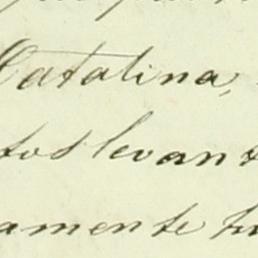 Catalina,
tos levant
amente tu